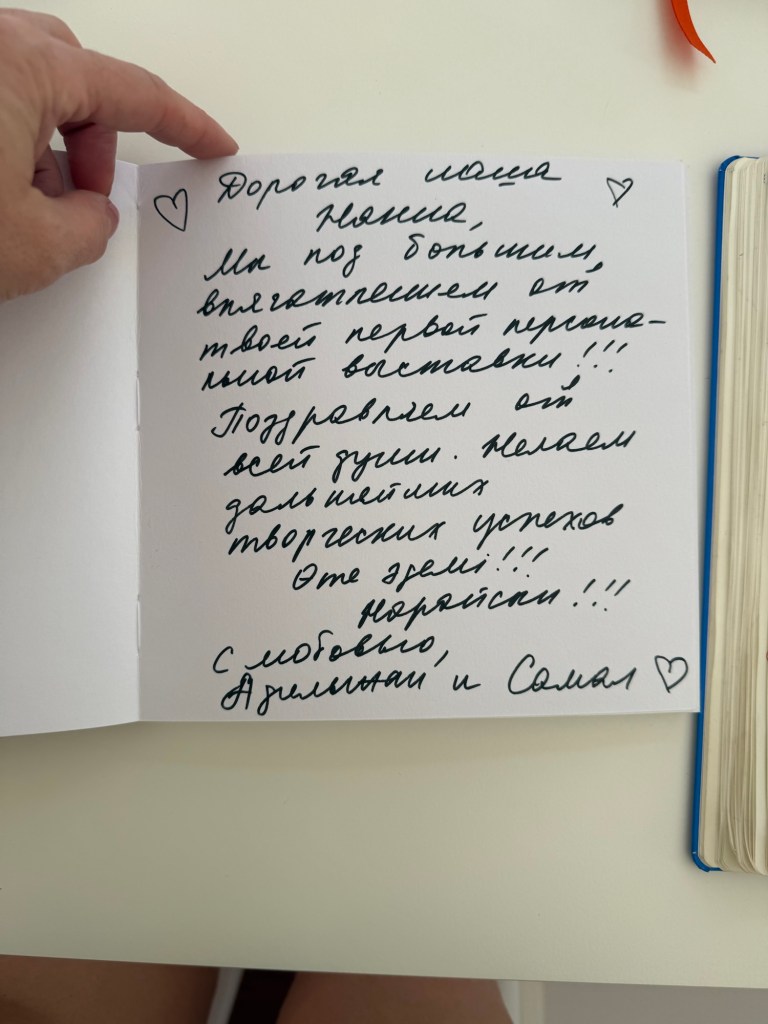 Дорогая наша
Жанна,
Мы под большим
впечатлением от
твоей первой персона-
льной выставки!!!
Поздравляем от
всей души. Желаем
дальнейших
творческих успехов
Өте әдемі!!!
Керемет!!!
С любовью,
и Самал